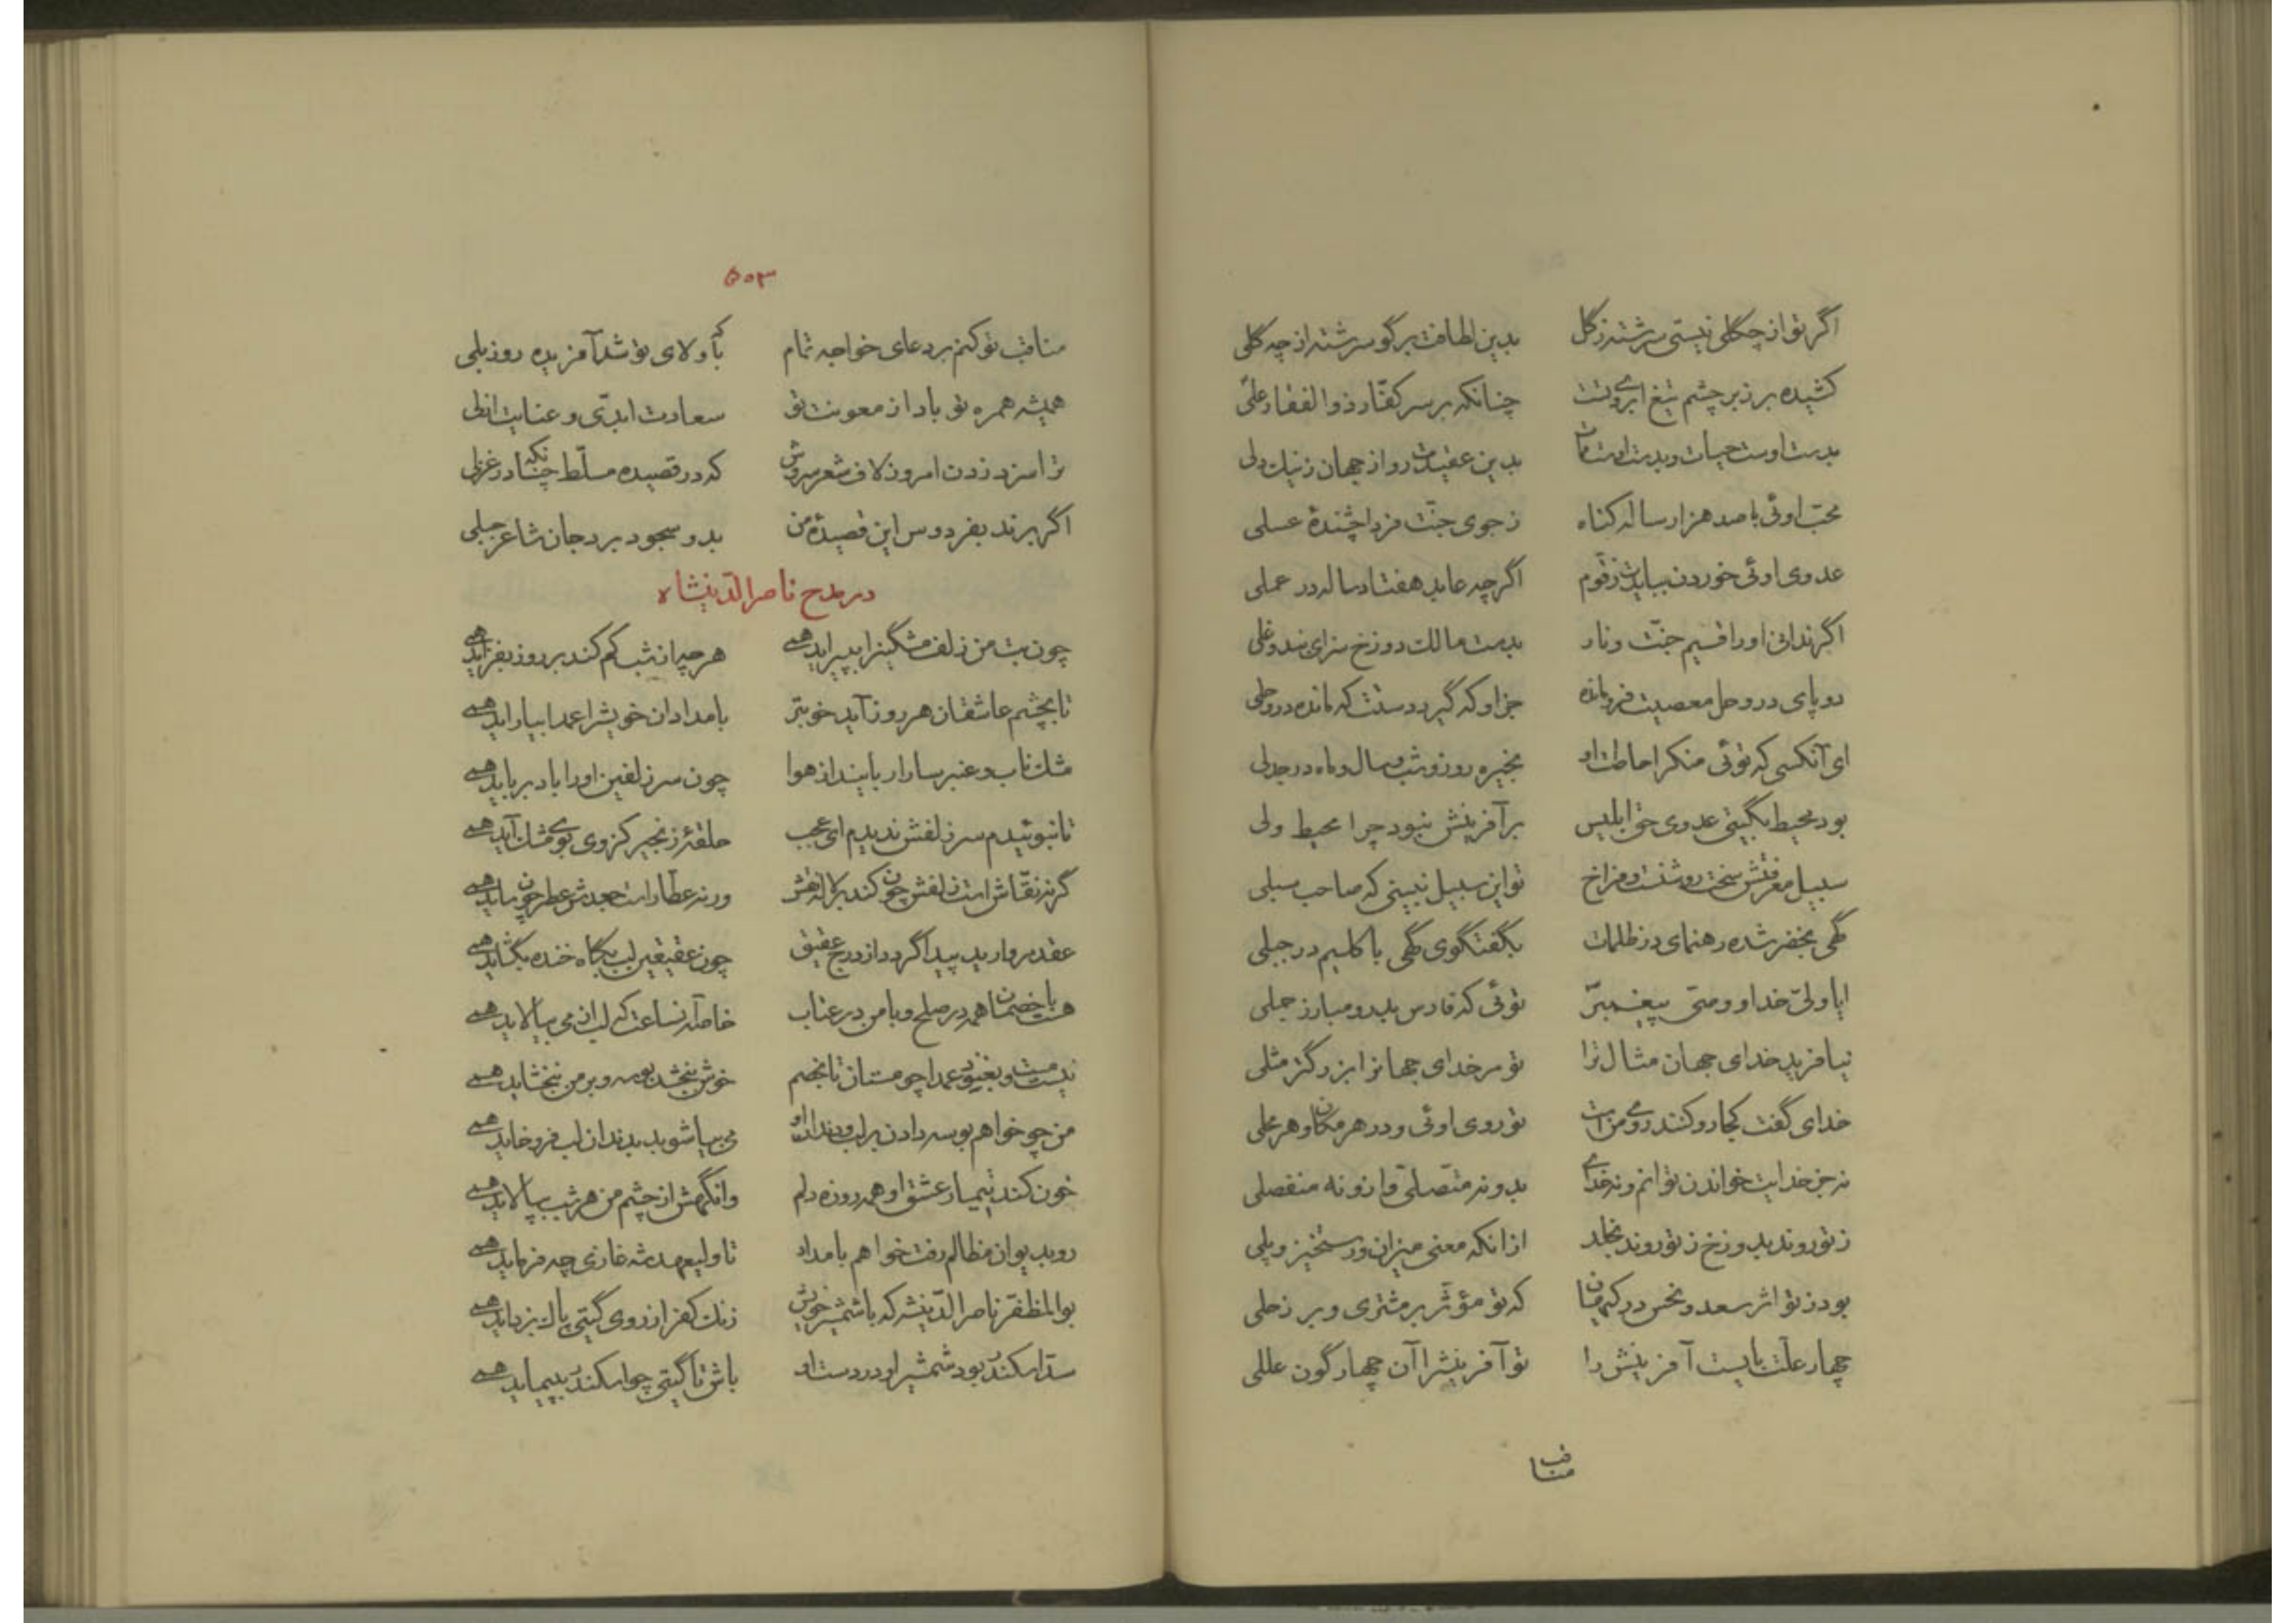 اگر تو از چگلی نیستی سرشته ز گل بدین لطافت برگو سرشته از چه گلی
کشیده بر زبر چشم تیغ ابروی تست چنانکه بر سر کفّار ذوالفقار علی
بدست اوست حیات و بدست اوست ممات بدین عقیدت رو از جهان ز نیک دلی
محبّ اوئی با صد هزار ساله گناه ز جوی جنّت فردا چشندهٔ عسلی
عدوی اوئی خوردن ببایدت زقّوم اگر چه عابد هفتاد ساله در عملی
اگر ندانی او را قسیم جنّت و نار بدست مالک دوزخ سزای بند و غلی
دو پای در وحل معصیت فرو مانده جز او که گیرد دستت که مانده در وحلی
ای آنکسی که توئی منکر احاطت او بخیره روز و شب و سال و ماه در جدلی
بود محیط بگیتی عدوی حق ابلیس بر آفرینش نبود چرا محیط ولی
سبیل معرفتش سخت روشنست و فراخ تو این سبیل نبینی که صاحب سبلی
گهی بخضر شده رهنمای در ظلمات بگفتگوی گهی با کلیم در جبلی
ایا ولیّ خدا و وصیّ پیغمبرّ توئی که فارس بدر و مبارز جملی
نیافرید خدای جهان مثال ترا تو مر خدای جهانرا بزرگتر مثلی
خدای گفت کجا رو کنند روی منست تو روی اوئی و در هر مکان و هر محلی
نه جز خدایت خواندن توانم و نه خدای بدو نه متّصلی و ازو نه منفصلی
ز تو روند بدوزخ ز تو روند بخلد از آنکه معنی میزان و رستخیز و پلی
بود ز تو اثر سعد و نحس در کیهان که تو مؤثّر بر مشتری و بر زحلی
چهار علّت بایست آفرینش را تو آفرینش را آن چهارگون عللی
مناقب
۵۰۳
مناقب تو کنم بر دعای خواجه تمام که با ولای تو شد آفریده روز بلی
همیشه همره تو باد از معونت تو سعادت ابدّی و عنایت ازلی
ترا سزد زدن امروز لاف شعر سروش که در قصیده مسلّط چنانکه در غزلی
اگر برند بفردوس این قصیدهٔ من بدو سجود برد جان شاعر جبلی
در مدح ناصرالدّینشاه
چون بت من زلف مشگینرا بپیراید همی هر چه از شب کم کند بر روز بفزاید همی
تا بچشم عاشقان هر روز آید خوبتر بامدادان خویشرا عمدا بیاراید همی
مشک ناب و عنبر سارا ربایند از هوا چون سر زلفین او را باد برباید همی
تا نبوئیدم سر زلفش ندیدم ای عجب حلقهٔ زنجیر کز وی بوی مشک آید همی
گر نه نقّاش است زلفش چون کند بر لاله نقش ورنه عطّار است جعدش عطر چون ساید همی
عقد مروارید پیدا گردد از درج عقیق چون عقیقین لب بگاه خنده بگشاید همی
هست با خصمان ما همه در صلح و با من در عتاب خاصّه آنساعت که لب از می بیالاید همی
نیست مست و بغنود عمدا چو مستان تا بخصم خوش ببخشد بوسه و بر من نبخشاید همی
من چو خواهم بوسه دادن بر لب و دندان او می بیاشوبد بدندان لب فرو خاید همی
خون کند تیمار عشق او همه روزه دلم وانگهش از چشم من هر شب بپالاید همی
رو بدیوان مظالم رفت خواهم بامداد تا ولیعهد شه غازی چه فرماید همی
بوالمظفّر ناصرالدّینشه که با شمشیر خویش زنگ کفر از روی گیتی پاک بزداید همی
سدّ اسکندر بود شمشیر او در دست او باش تا گیتی چو اسکندر بپیماید همی